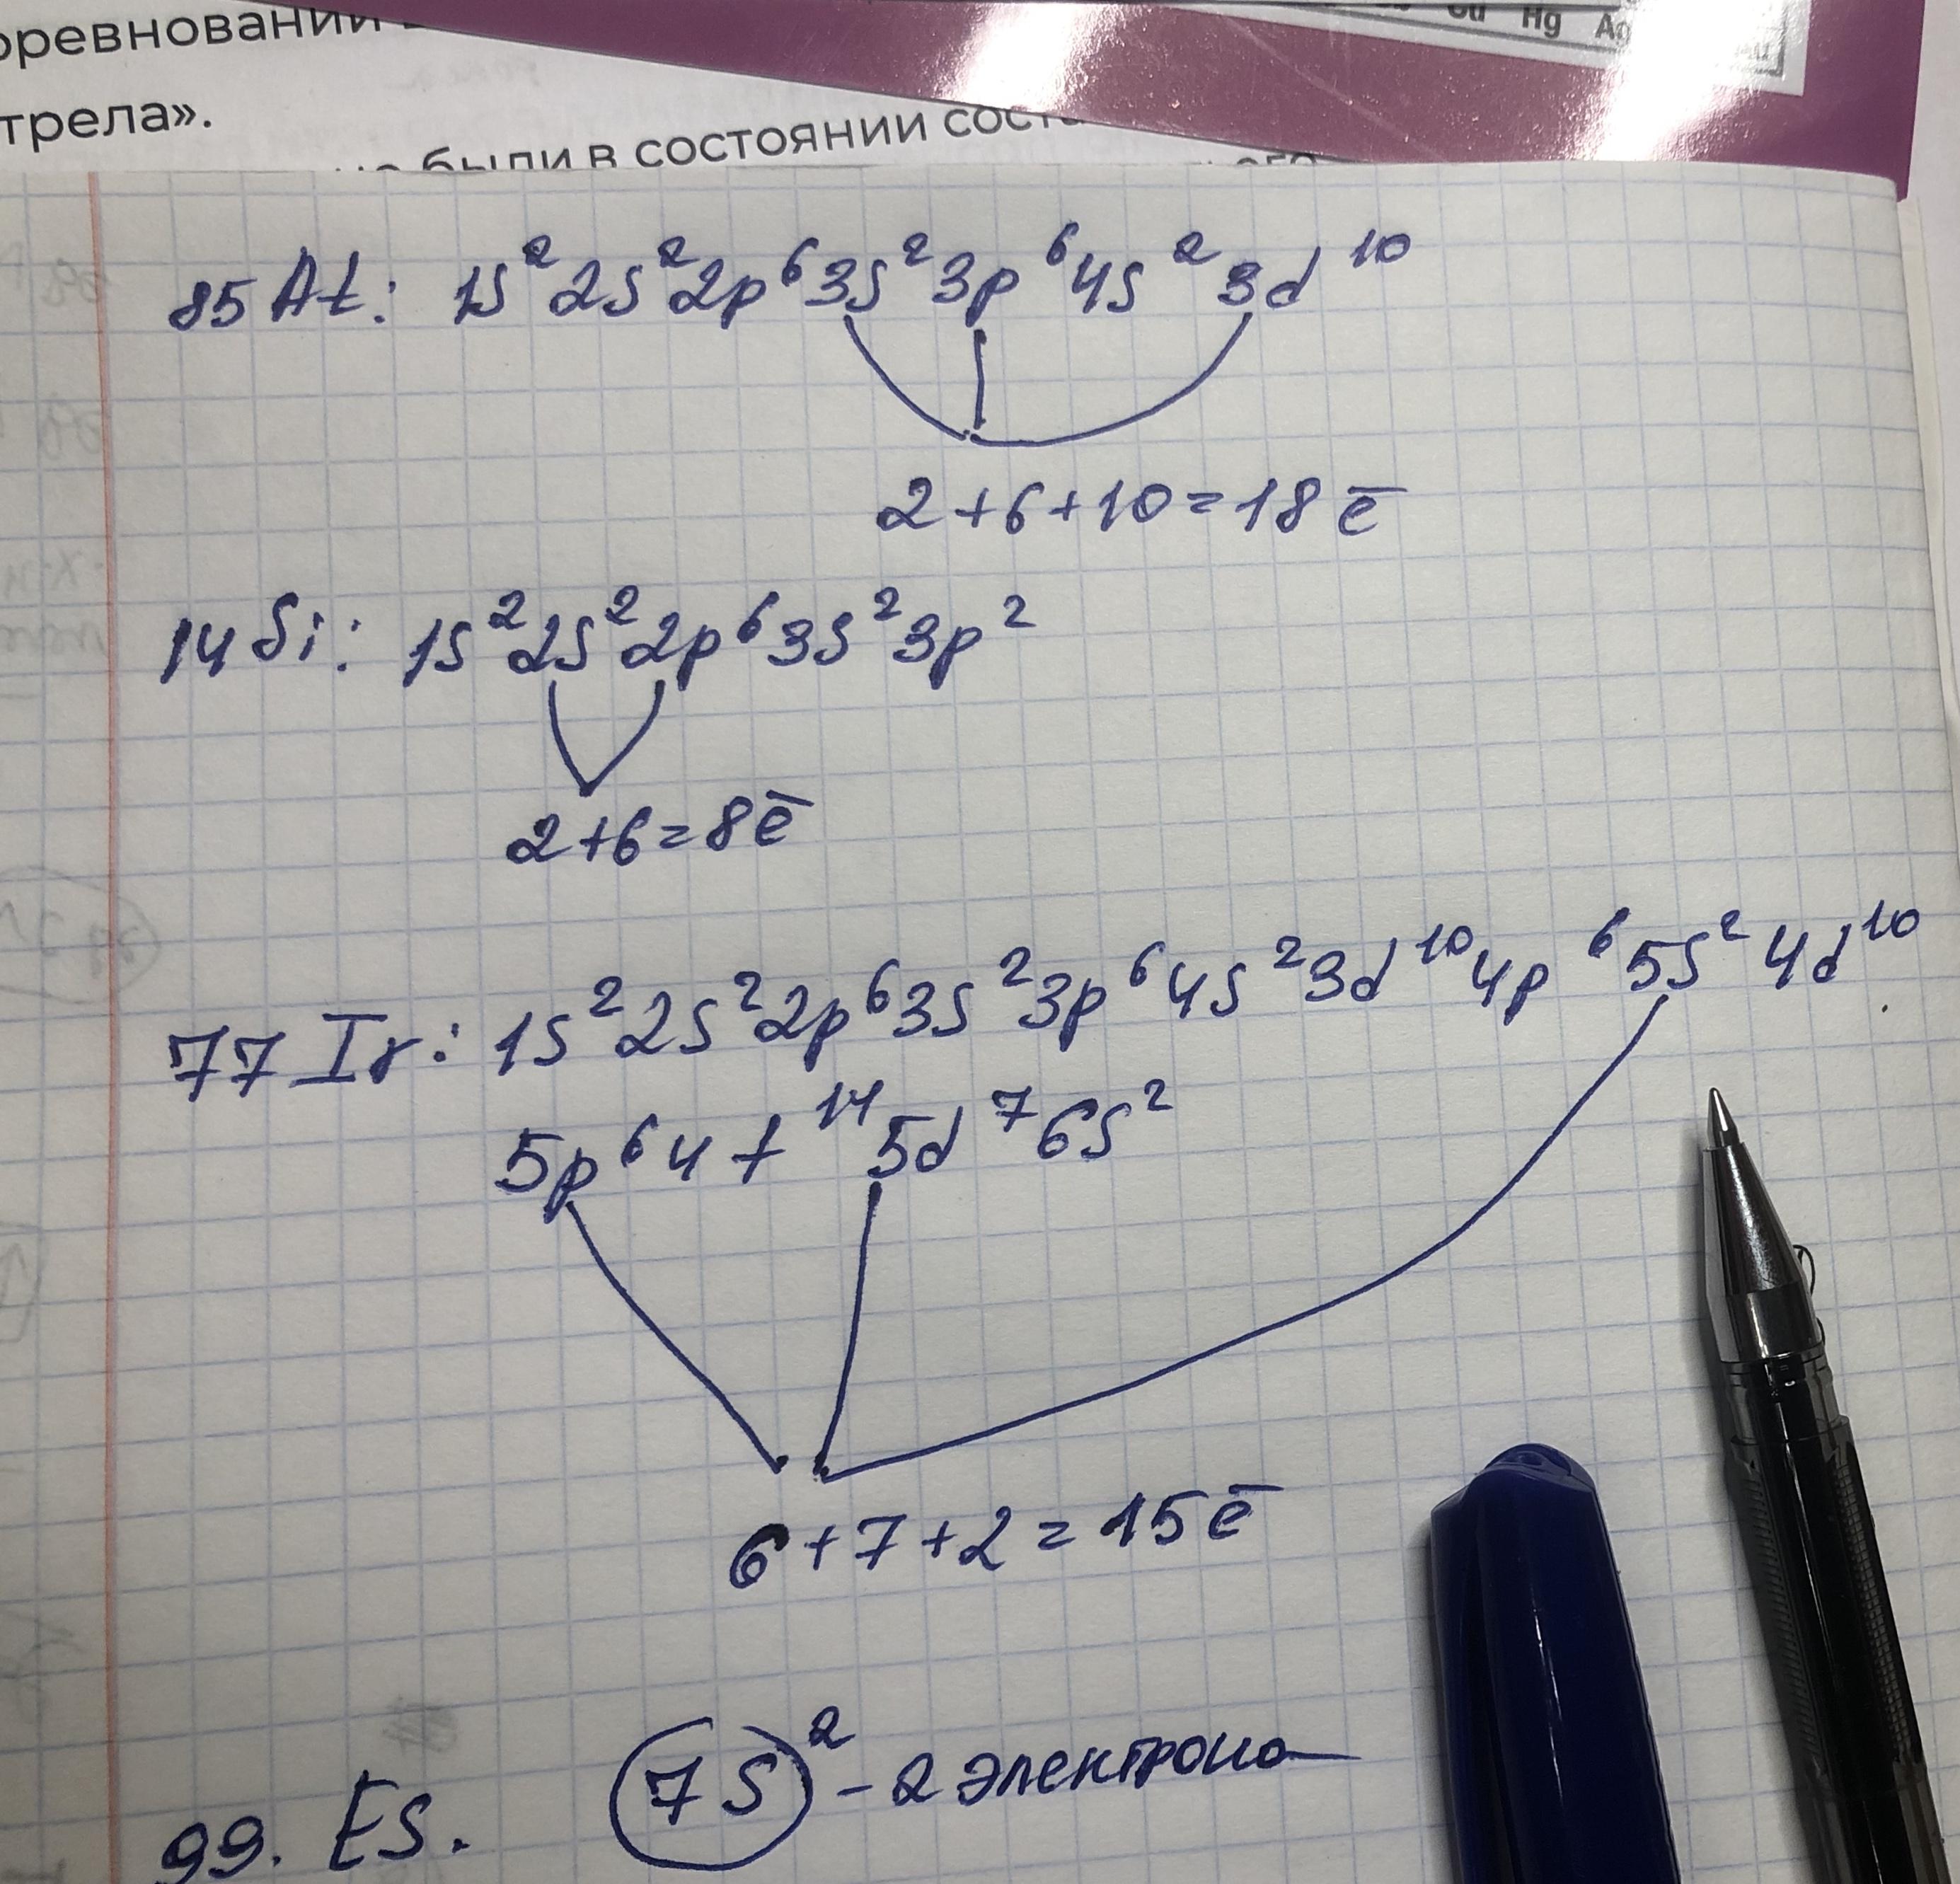 оревновании
Hg
трела».
были в состоянии
85 At: 1s² 2s² 2p⁶ 3s² 3p⁶ 4s² 3d¹⁰
2+6+10=18 ē
14 Si: 1s² 2s² 2p⁶ 3s² 3p²
2+6=8ē
77 Ir: 1s² 2s² 2p⁶ 3s² 3p⁶ 4s² 3d¹⁰ 4p⁶ 5s² 4d¹⁰
5p⁶ 4f¹⁴ 5d⁷ 6s²
6+7+2=15ē
99. Es. 7s² - 2 электрона